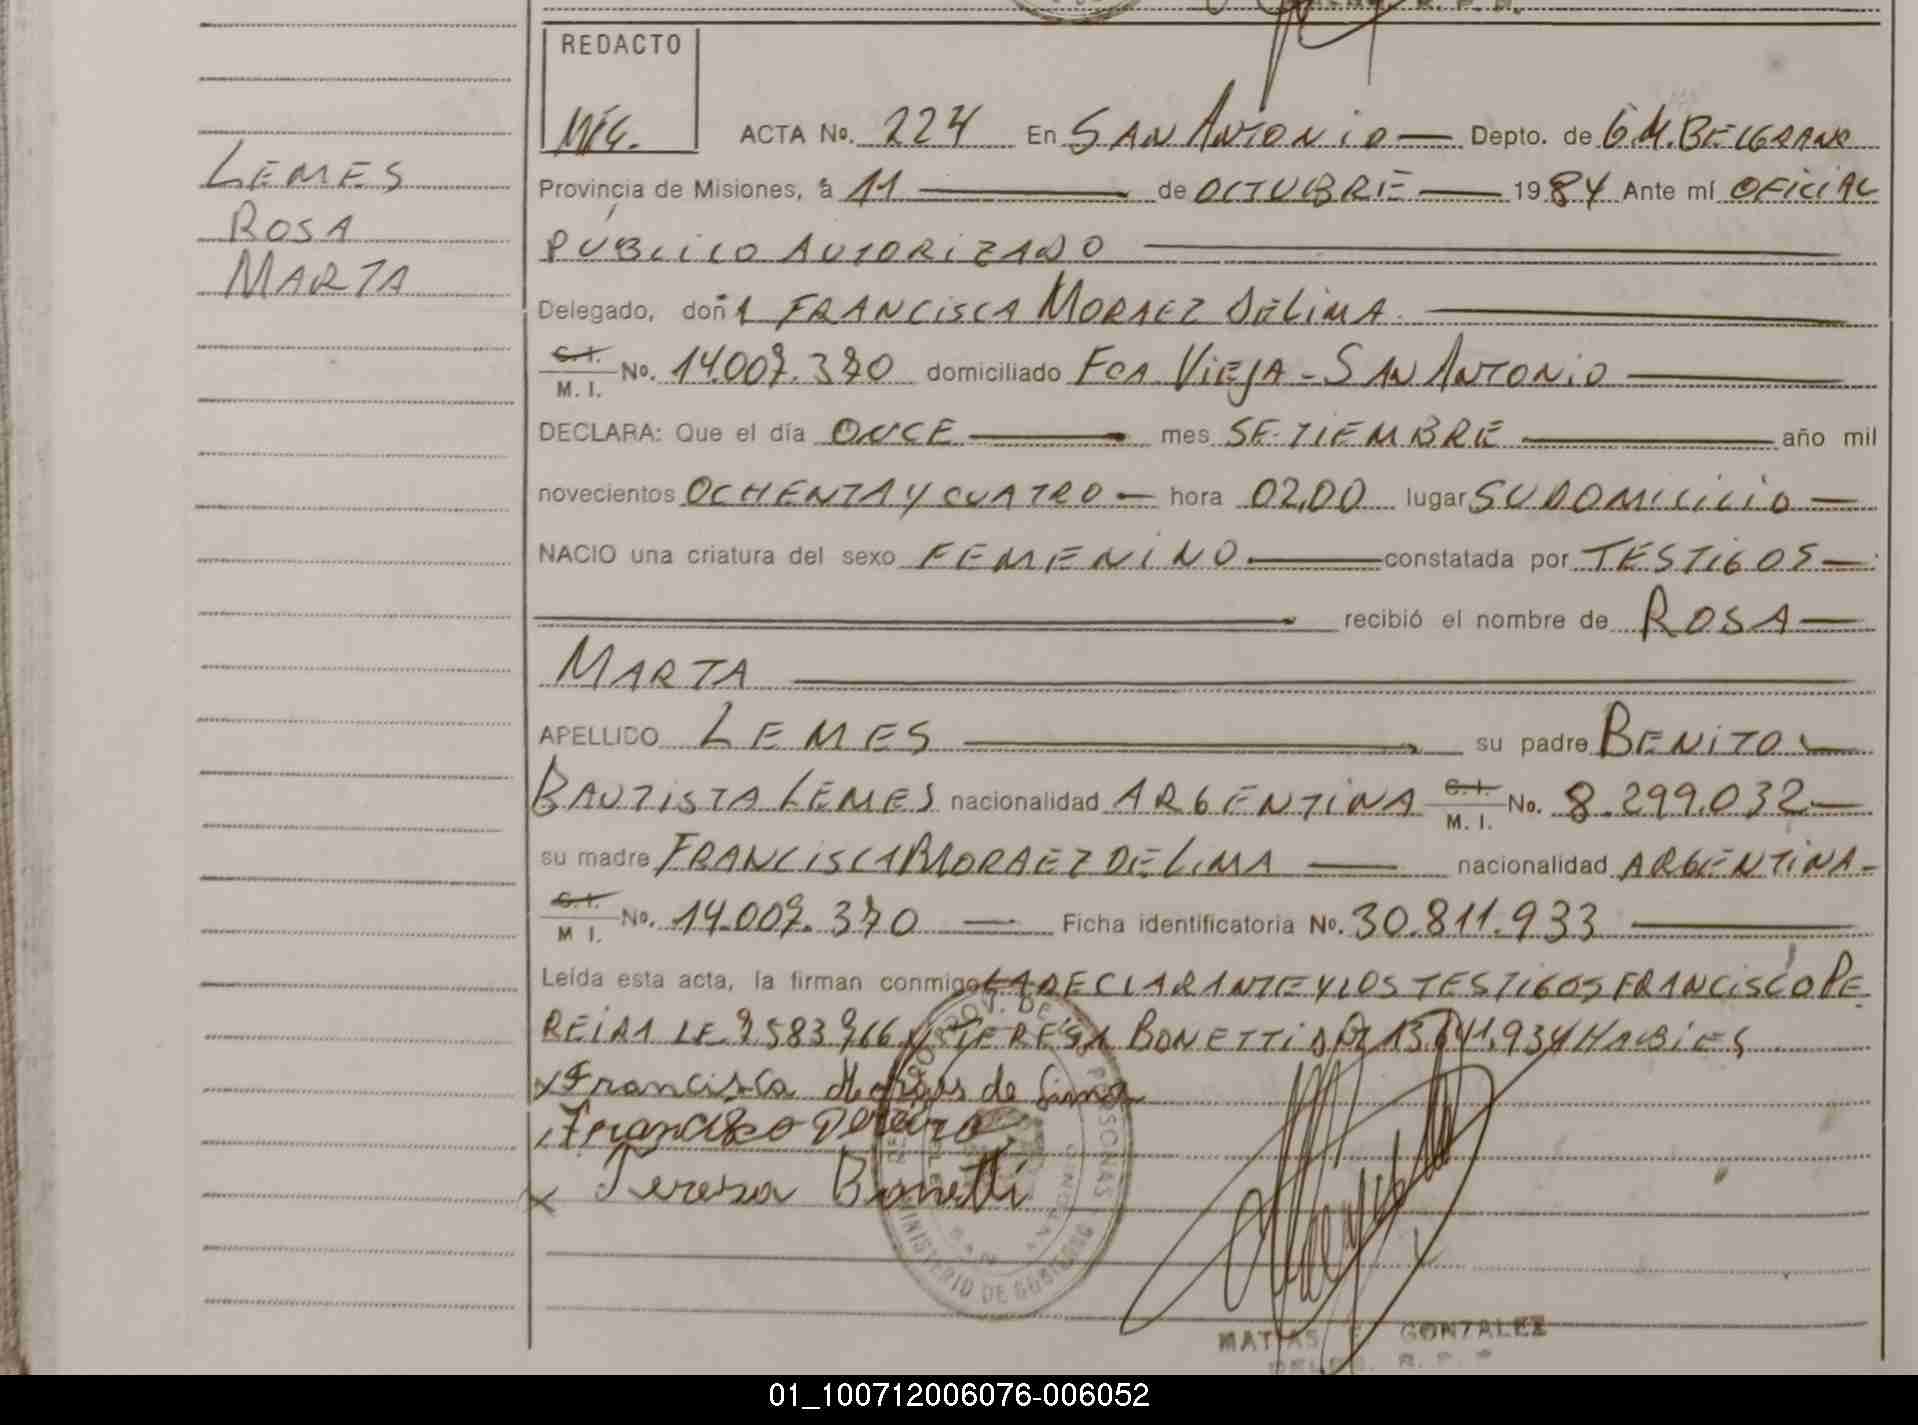 REDACTO
ACTA No. 224 En SAN ANTONIO Depto. de G.M. BELGRANO
LEMES
ROSA
MARTA
Provincia de Misiones, a 11 de OCTUBRE 1984 Ante mí OFICIAL
PÚBLICO AUTORIZADO
Delegado, doñA FRANCISCA MORAEZ DE LIMA
C.I.
M. I. No. 14.007.370 domiciliado FCA VIEJA - SAN ANTONIO
DECLARA: Que el día ONCE mes SETIEMBRE año mil
novecientos OCHENTA Y CUATRO hora 02,00 lugar SU DOMICILIO
NACIO una criatura del sexo FEMENINO constatada por TESTIGOS
recibió el nombre de ROSA
MARTA
APELLIDO LEMES su padre BENITO
BAUTISTA LEMES nacionalidad ARGENTINA C.I. M. I. No. 8.299.032
su madre FRANCISCA MORAEZ DE LIMA nacionalidad ARGENTINA
C.I.
M I. No. 14.007.370 Ficha identificatoria No. 30.811.933
Leída esta acta, la firman conmigo LA DECLARANTE Y LOS TESTIGOS FRANCISCO PE
REIRA LE. 7583966 Y TERESA BONETTI 13.641.934 HABILES
x Francisca Moraes de Lima
Francisco Pereira
x Teresa Bonetti
MINISTERIO DE GOBIERNO
PERSONAS
SAN
MATIAS GONZALEZ
R. P. P.
01_100712006076-006052